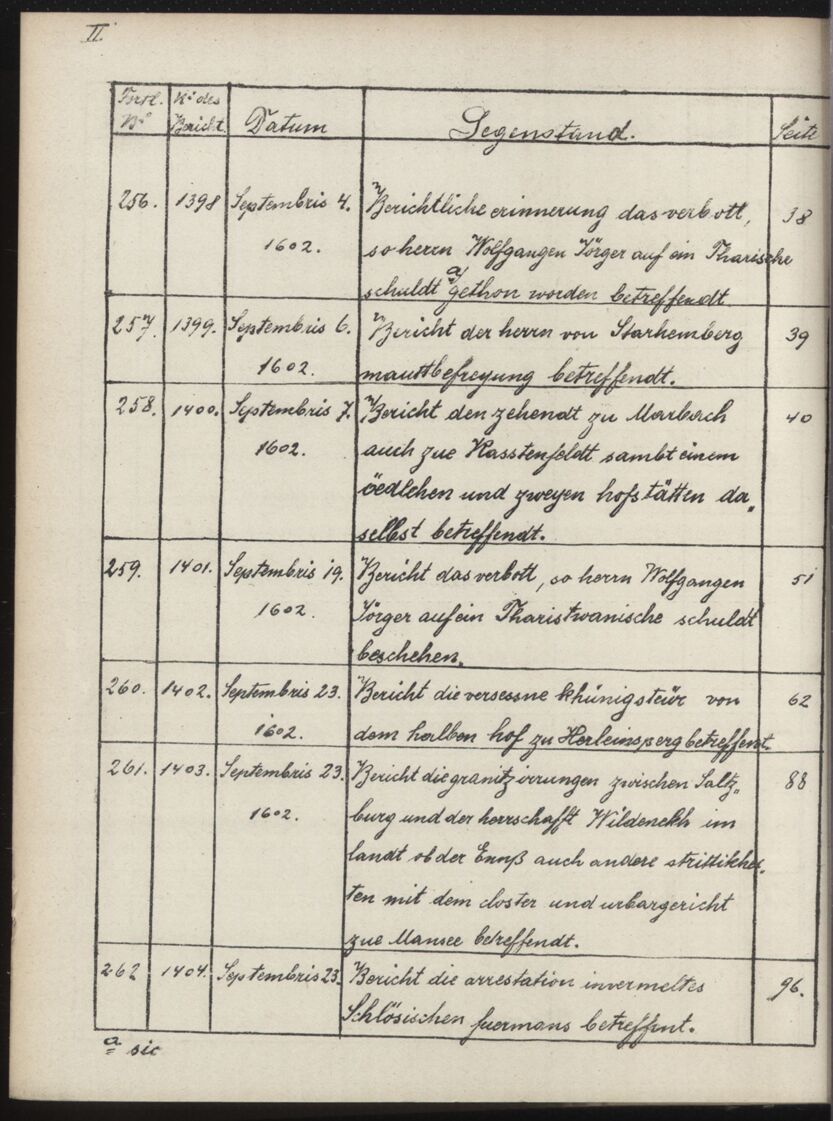 II.
Fortl. Nº des
Nº Bericht. Datum Gegenstand. Seite
256. 1398 Septembris 4. Berichtliche erinnerung das verbott, 38
1602. so herrn Wolfgangen Jörger auf ein Tharische
schuldt a) gethon worden betreffendt
257. 1399. Septembris 6. Bericht der herrn von Starhemberg 39
1602. mauttbefreyung betreffendt.
258. 1400. Septembris 7. Bericht den zehendt zu Marbach 40
1602. auch zue Rasstenfeldt sambt einem
öedlehen und zweyen hofstätten da„
selbst betreffendt.
259. 1401. Septembris 19. Bericht das verbott, so herrn Wolfgangen 51
1602. Jörger auf ein Tharistwanische schuldt
beschehen.
260. 1402. Septembris 23. Bericht die versessne khünigsteür von 62
1602. dem halben hof zu Herleinsperg betreffent.
261. 1403. Septembris 23. Bericht die granitzirrungen zwischen Saltz„ 88
1602. burg und der herrschafft Wildenekh im
landt ob der Ennß auch andere strittikhei„
ten mit dem closter und urbargericht
zue Mansee betreffendt.
262 1404. Septembris 23. Bericht die arrestation invermeltes 96.
Schlösischen fuermans betreffent.
a sic